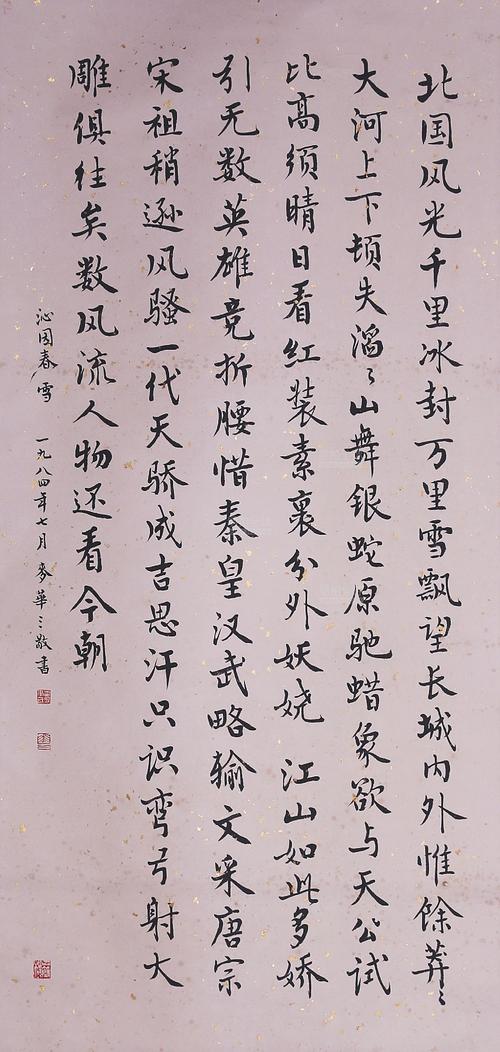 北国风光千里冰封万里雪飘望长城内外惟餘莽〻
大河上下顿失滔〻山舞银蛇原驰蜡象欲与天公试
比高须晴日看红装素裹分外妖娆 江山如此多娇
引无数英雄竞折腰惜秦皇汉武略输文采唐宗
宋祖稍逊风骚一代天骄成吉思汗只识弯弓射大
雕俱往矣数风流人物还看今朝
沁园春 雪 一九八四年七月 麥華三敬書